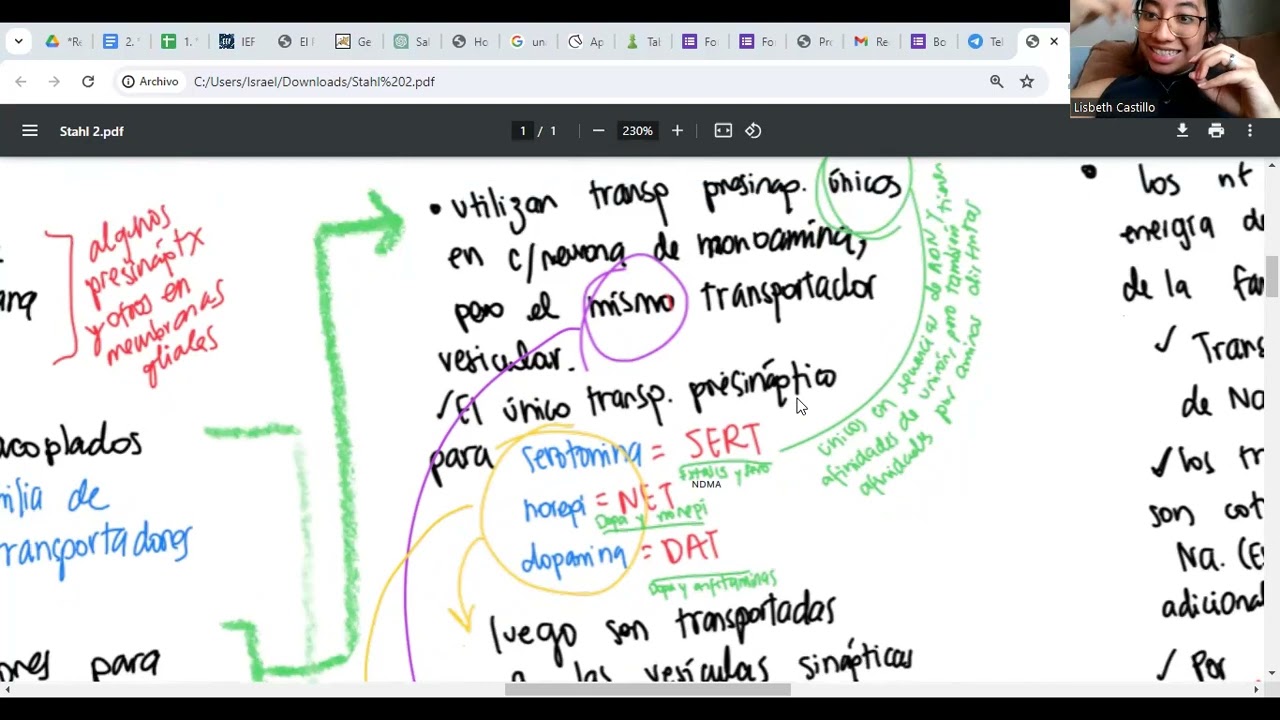 *Re
2.
1.
IEF
El I
Ge
Sal
Ho
un
Ap
Tal
Fo
Fo
Pro
Re
Bo
Tel
Archivo
C:/Users/Israel/Downloads/Stahl%202.pdf
Lisbeth Castillo
Stahl 2.pdf
1 / 1
230%
algunos
presináptx
y otros en
membranas
gliales
acoplados
milia de
transportadores
ones para
• utilizan transp presinap. únicos
en c/neurona de monoamina,
pero el mismo transportador
vesicular.
✓ El único transp. presináptico
para serotonina = SERT
Extasis y
NDMA
norepi = NET
Dopa y norepi
dopamina = DAT
Dopa y anfetaminas
luego son transportadas
a las vesículas sinápticas
únicos en secuencia de ADN y tienen
afinidades de unión, pero también
afinidades por aminas distintas
• los nt
energía de
de la fam
✓ Trans
de Na
✓ los tr
son cot
Na. (E
adicional
✓ Por